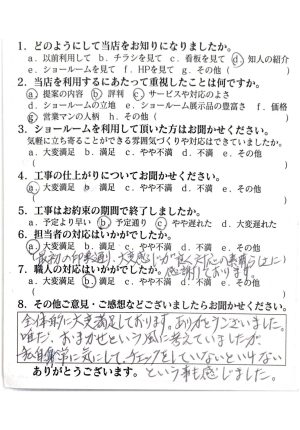 1. どのようにして当店をお知りになりましたか。
a. 以前利用して b. チラシを見て c. 看板を見て d. 知人の紹介
e. ショールームを見て f. HPを見て g. その他（ ）
2. 当店を利用するにあたって重視したことは何ですか。
a. 提案の内容 b. 評判 c. サービスや対応のよさ
d. ショールームの立地 e. ショールーム展示品の豊富さ f. 価格
g. 営業マンの人柄 h. その他（ ）
3. ショールームを利用して頂いた方はお聞かせください。
気軽に立ち寄ることができる雰囲気づくりや対応はできていましたか。
a. 大変満足 b. 満足 c. やや不満 d. 不満 e. その他
（ ）
4. 工事の仕上がりについてお聞かせください。
a. 大変満足 b. 満足 c. やや不満 d. 不満 e. その他
（ ）
5. 工事はお約束の期間で終了しましたか。
a. 予定より早い b. 予定通り c. やや遅れた d. 大変遅れた
6. 担当者の対応はいかがでしたか。
a. 大変満足 b. 満足 c. やや不満 d. 不満 e. その他
（最初の印象通り、大変感じが良く対応の素晴らしさに）
感謝しております。
7. 職人の対応はいかがでしたか。
a. 大変満足 b. 満足 c. やや不満 d. 不満 e. その他
（ ）
8. その他ご意見・ご感想などございましたらお聞かせください。
全体的に大変満足しております。ありがとうございました。
唯だ、おまかせという風に考えていましたが、
私自身常に気にして、チェックをしていないといけない
ありがとうございます。という事も感じました。